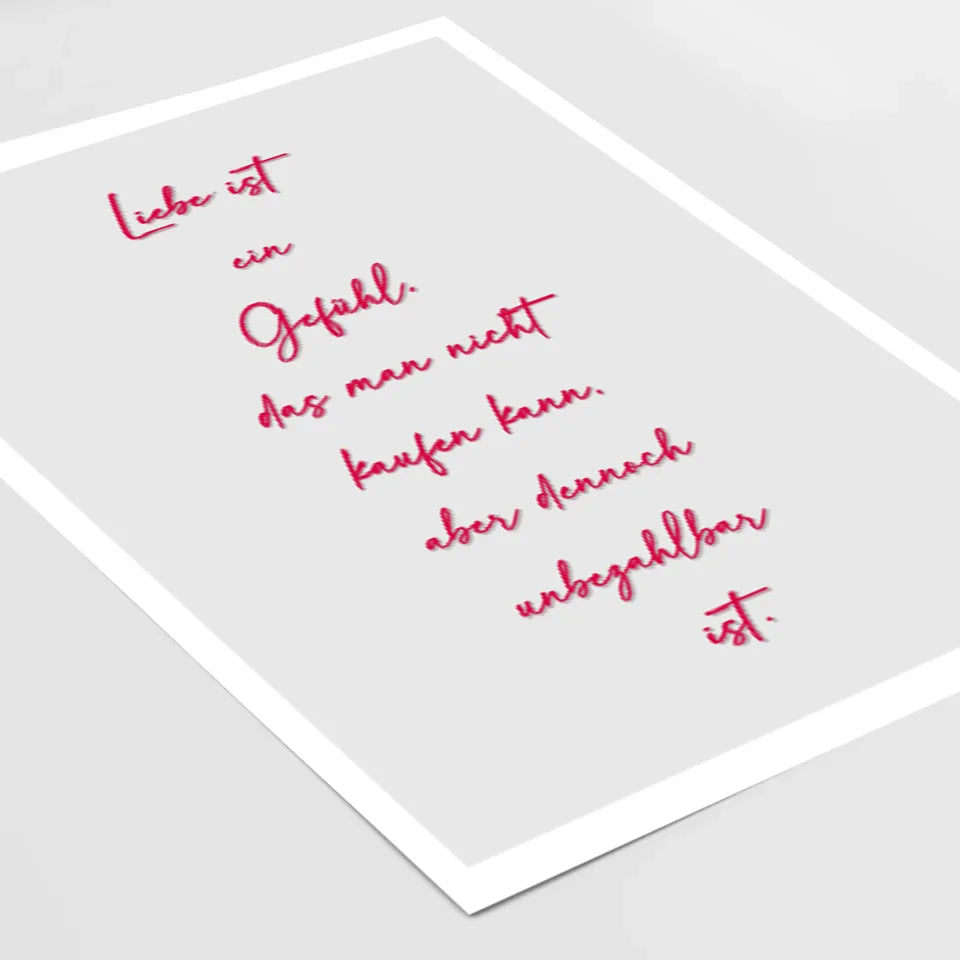 Liebe ist
ein
Gefühl.
das man nicht
kaufen kann.
aber dennoch
unbezahlbar
ist.